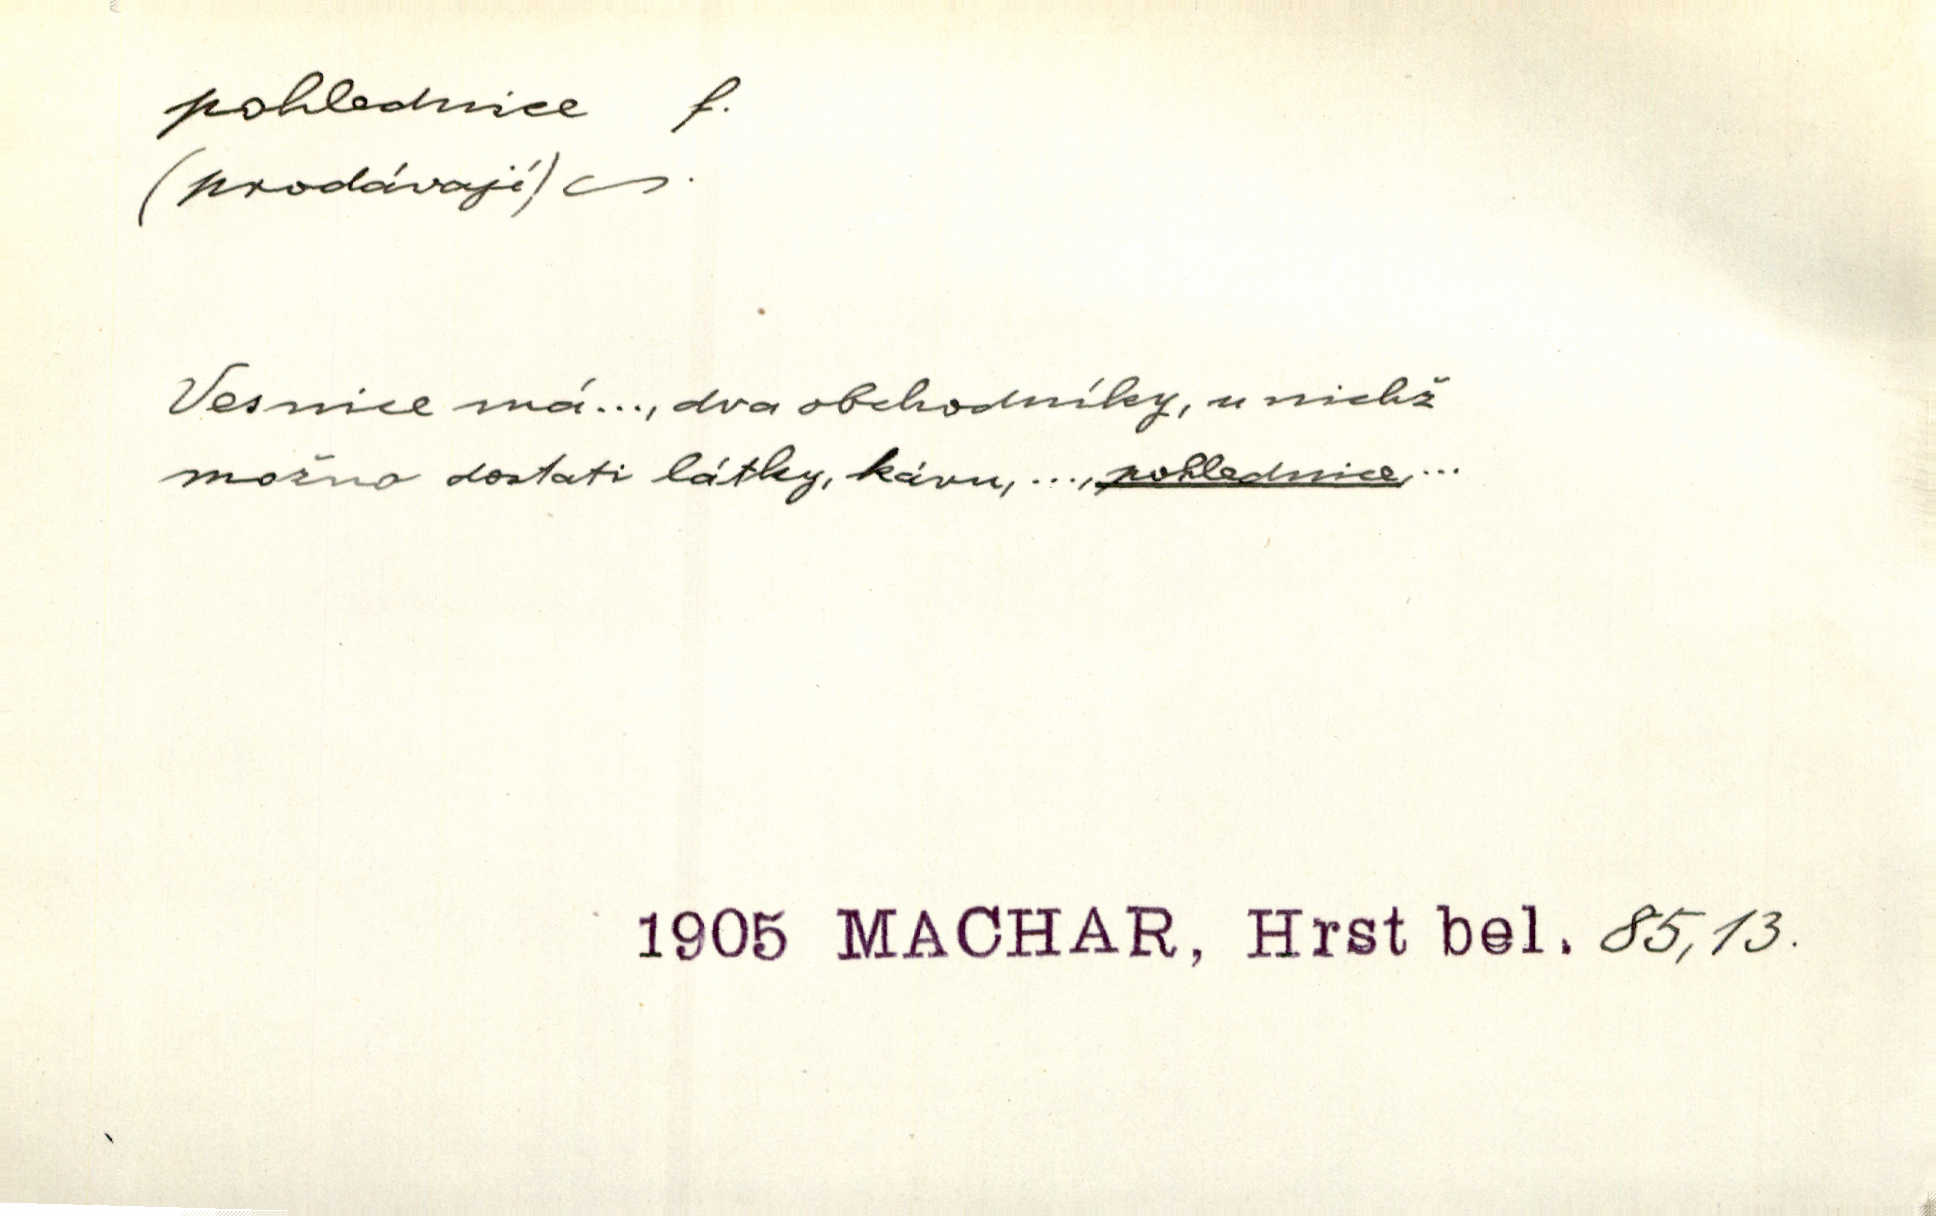 pohlednice f.
(prodávají) ~.
Vesnice má..., dva obchodníky, u nichž
možno dostati látky, kávu, ..., pohlednice, ...
1905 MACHAR, Hrst bel. 85,13.